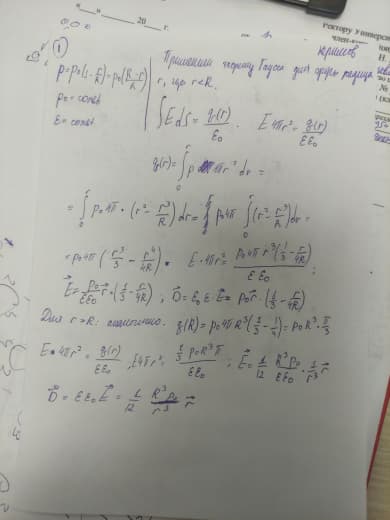 "__" ______ 20__ г.
ректору Универси
0,0 0
①
ρ=ρ₀(1-r/R)=ρ₀(R-r/R)
Применим теорему Гаусса для сферы радиуса
r, где r<R.
ρ₀=const
ε=const
∫E dS=q(r)/ε₀ E4πr²=q(r)/εε₀
q(r)=∫₀ʳ ρ 4πr² dr=
=∫₀ʳ ρ₀4π·(r²-r³/R)dr= ρ₀4π ∫₀ʳ(r²-r³/R)dr=
=ρ₀4π(r³/3-r⁴/4R). E·4πr²=ρ₀4πr³(1/3-r/4R)/εε₀;
E⃗=ρ₀/εε₀ r⃗·(1/3-r/4R); D⃗=ε₀ε E⃗=ρ₀r⃗·(1/3-r/4R)
Для r>R: аналогично. q(R)=ρ₀4πR³(1/3-1/4)=ρ₀R³·π/3
E·4πr²=q(r)/εε₀; E4πr²=1/3 ρ₀R³π/εε₀; E⃗=1/12 R³ρ₀/εε₀·1/r³ r⃗
D⃗=εε₀E⃗=1/12 R³ρ₀/r³ r⃗